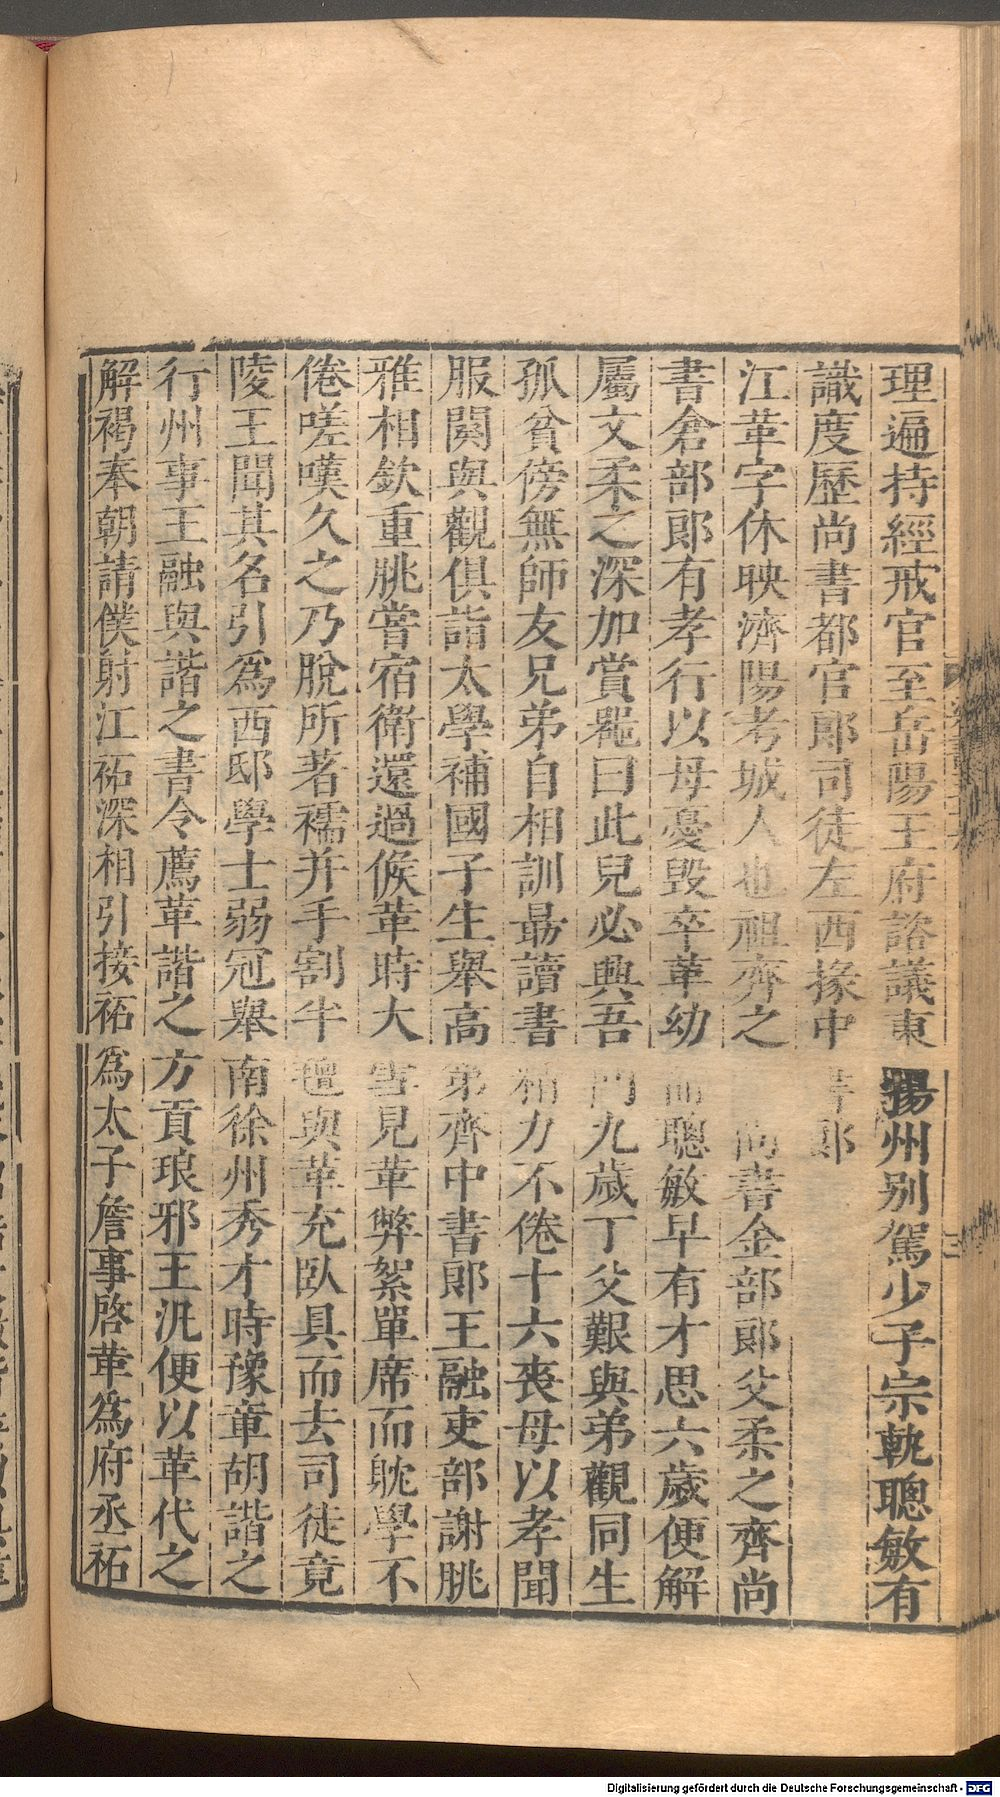 理遍持經戒官至岳陽王府諮議東揚州别駕少子宗軌聰敏有
識度歷尚書都官郎司徒左西掾中書郎
江革字休映濟陽考城人也祖齊之尚書金部郎父柔之齊尚
書倉部郎有孝行以母憂毁卒革幼而聰敏早有才思六歲便解
屬文柔之深加賞器曰此兒必興吾門九歲丁父艱與弟觀同生
孤貧傍無師友兄弟自相訓勗讀書精力不倦十六喪母以孝聞
服闋與觀俱詣太學補國子生舉高第齊中書郎王融吏部謝朓
雅相欽重朓嘗宿衛還過候革時大雪見革弊絮單席而躭學不
倦嗟嘆久之乃脫所著襦并手割半氊與革充臥具而去司徒竟
陵王聞其名引爲西邸學士弱冠舉南徐州秀才時豫章胡諧之
行州事王融與諧之書令薦革諧之方貢琅邪王汎便以革代之
解褐奉朝請僕射江祏深相引接祏爲太子詹事啓革爲府丞祏
Digitalisierung gefördert durch die Deutsche Forschungsgemeinschaft - DFG